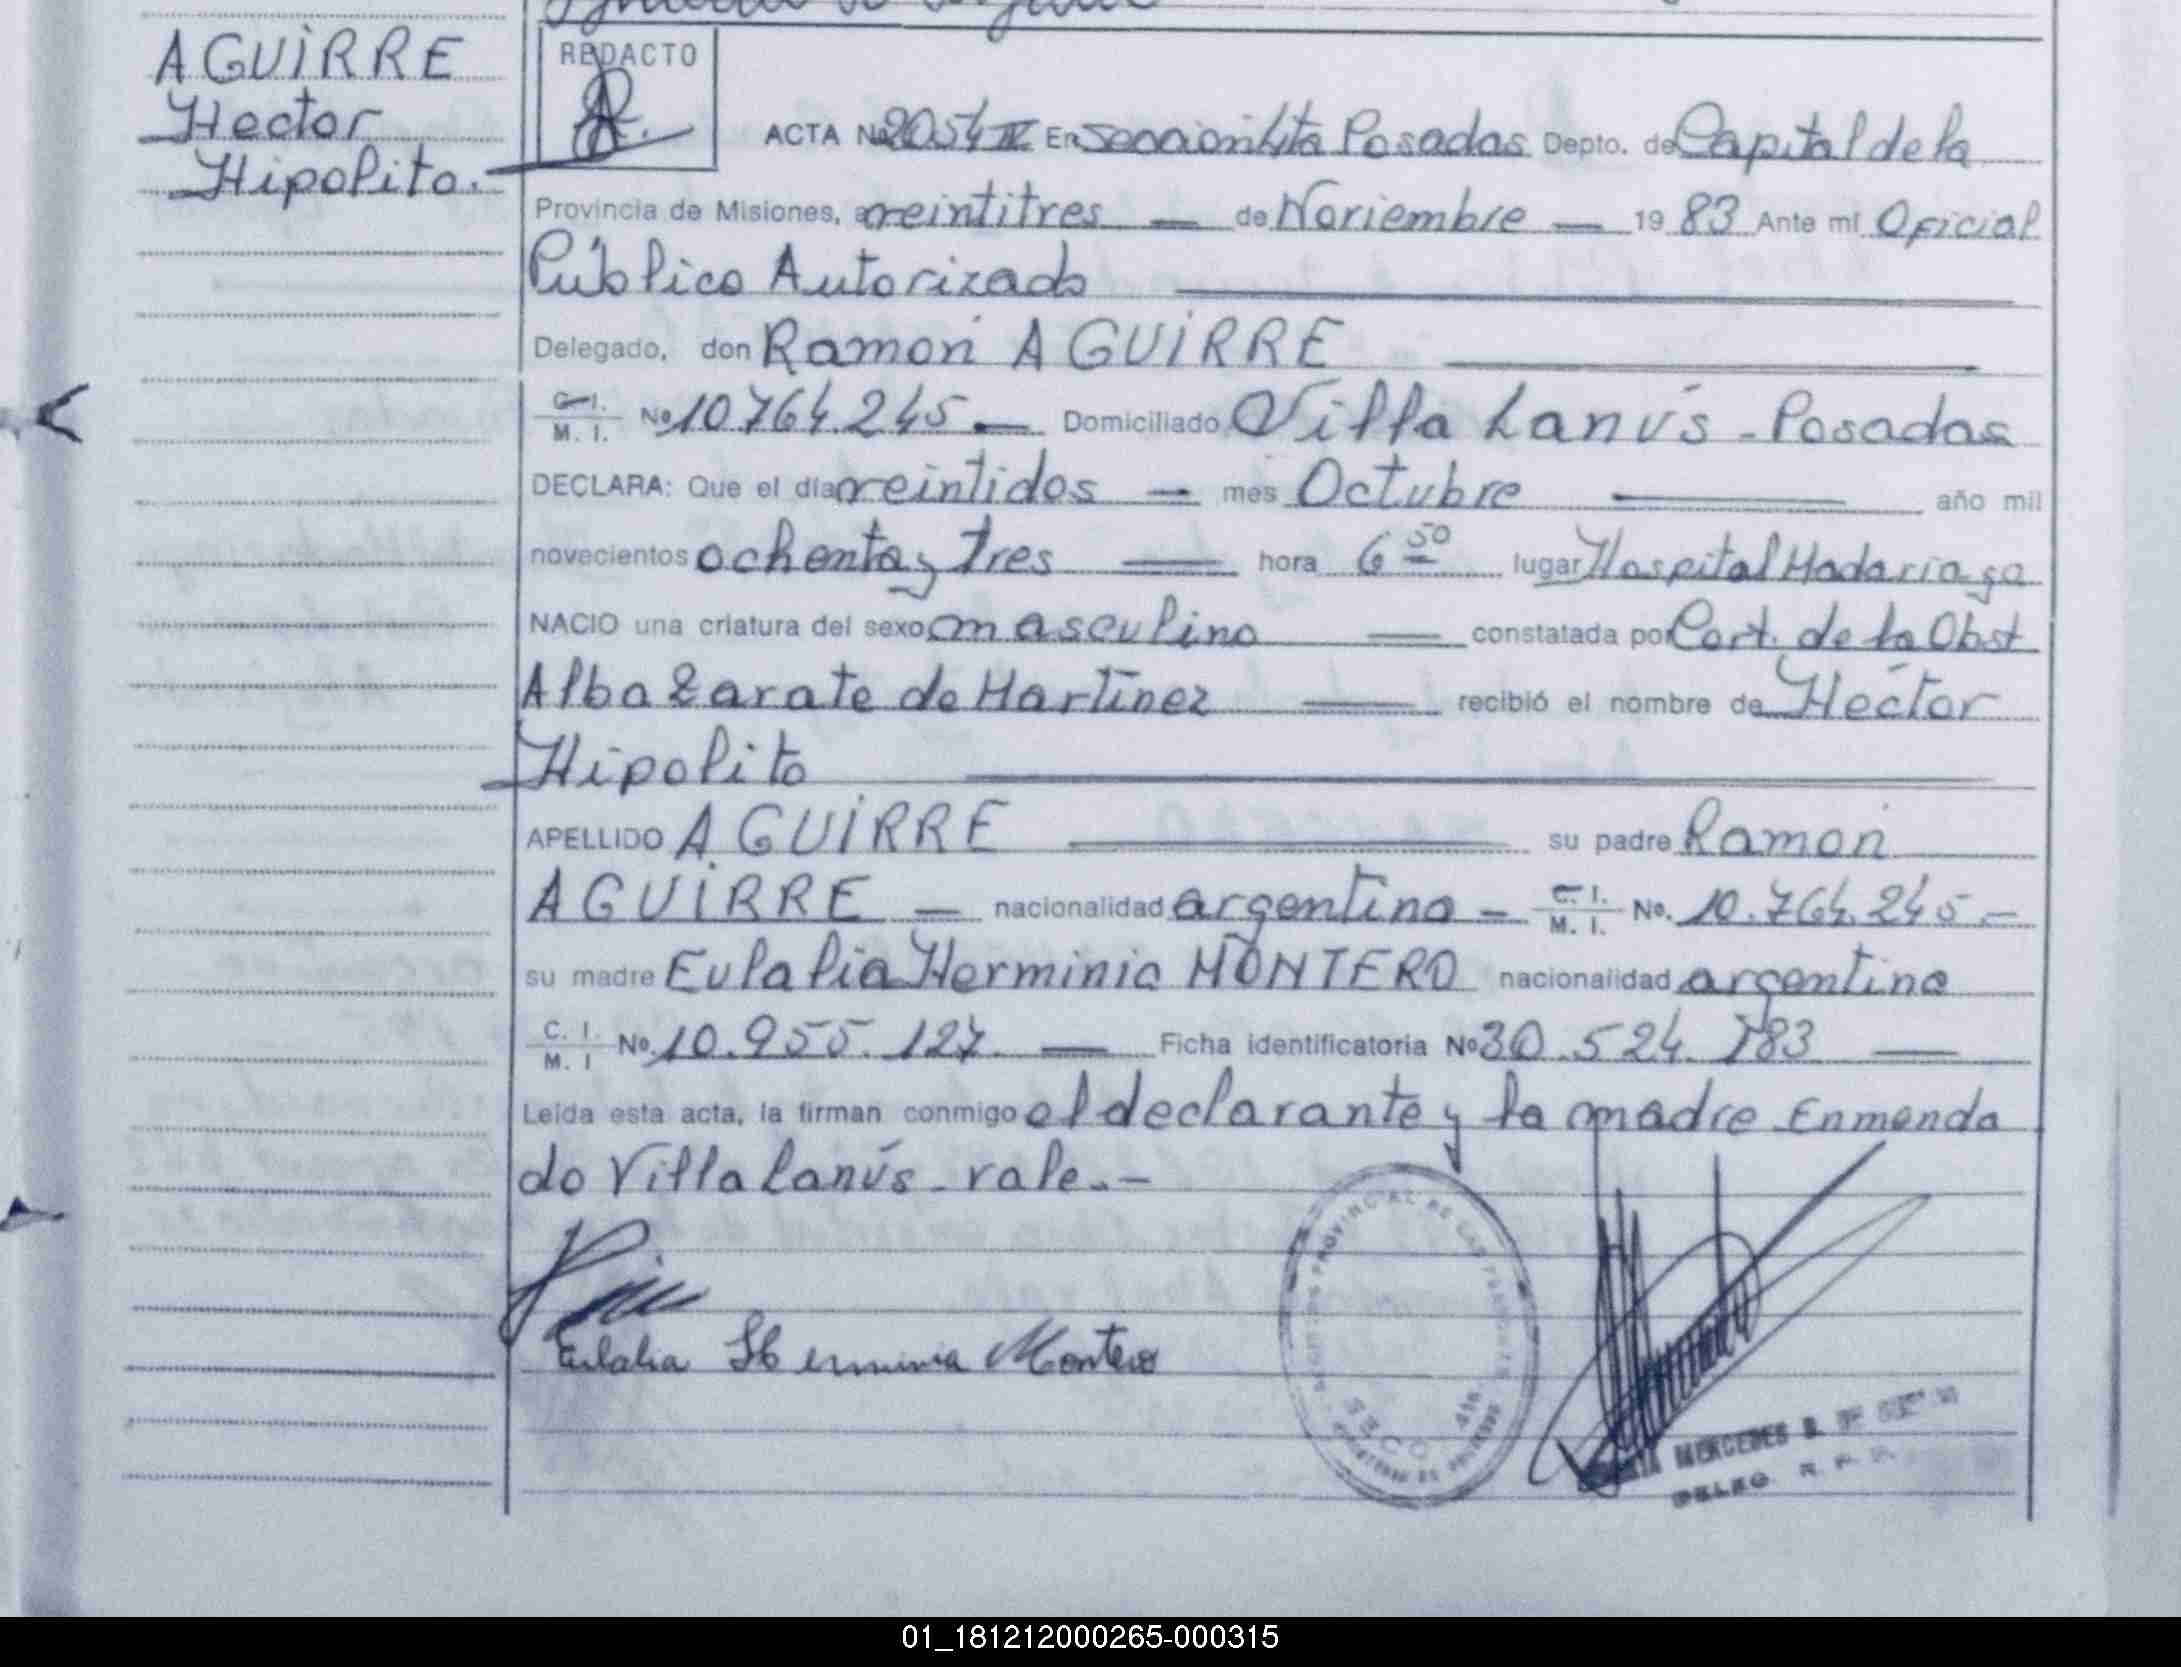 AGUIRRE
Hector
Hipolito.
REDACTO
ACTA Nº 2054 IV En Sección 4ta Posadas Depto. de Capital de la
Provincia de Misiones, a veintitres — de Noviembre — 1983 Ante mi Oficial
Público Autorizado
Delegado, don Ramón AGUIRRE
C. I. M. I. Nº 10.764.245 — Domiciliado Villa Lanús - Posadas
DECLARA: Que el día veintidos — mes Octubre — año mil
novecientos ochenta y tres — hora 6 50 lugar Hospital Madariaga
NACIO una criatura del sexo masculino — constatada por Cert. de la Obst
Alba Zarate de Martínez — recibió el nombre de Héctor
Hipolito
APELLIDO AGUIRRE — su padre Ramón
AGUIRRE — nacionalidad argentino — C. I. M. I. No. 10.764.245 —
su madre Eulalia Herminia MONTERO nacionalidad argentina
C. I. M. I Nº 10.955.127 — Ficha identificatoria Nº 30.524.783 —
Leída esta acta, la firman conmigo el declarante y la madre Enmenda
do Villa Lanús - vale. -
Eulalia Herminia Montero
PROVINCIAL DE LAS PERSONAS
MERCEDES B. DE
DELEG. R. P. P.
01_181212000265-000315